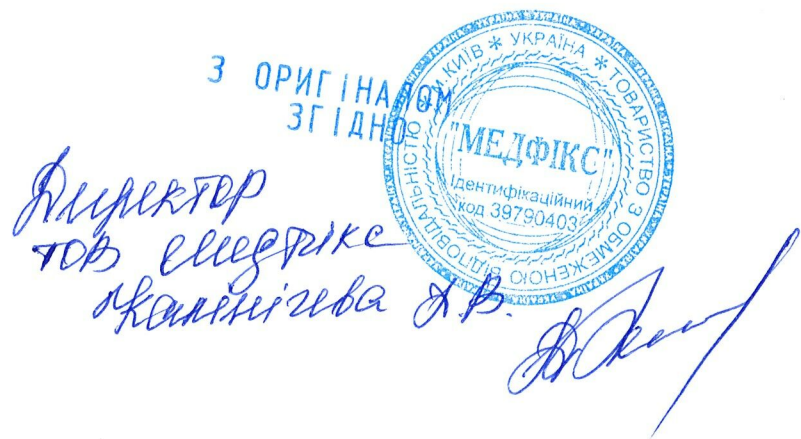 З ОРИГІНАЛОМ
ЗГІДНО
* М.КИЇВ * УКРАЇНА * ТОВАРИСТВО З ОБМЕЖЕНОЮ ВІДПОВІДАЛЬНІСТЮ
"МЕДФІКС"
Ідентифікаційний
код 39790403
Директор
ТОВ Медфікс
Д.В.